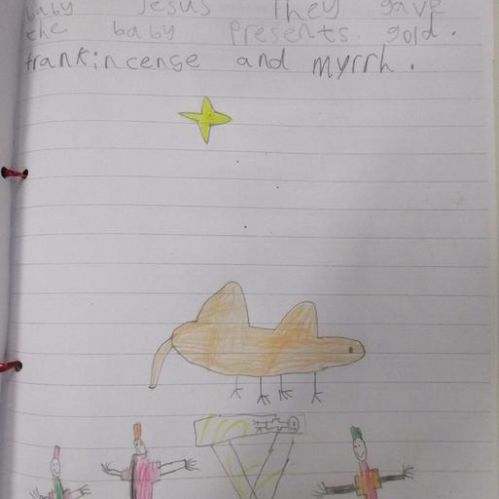 baby Jesus They gave
the baby presents. gold.
frankincense and myrrh.